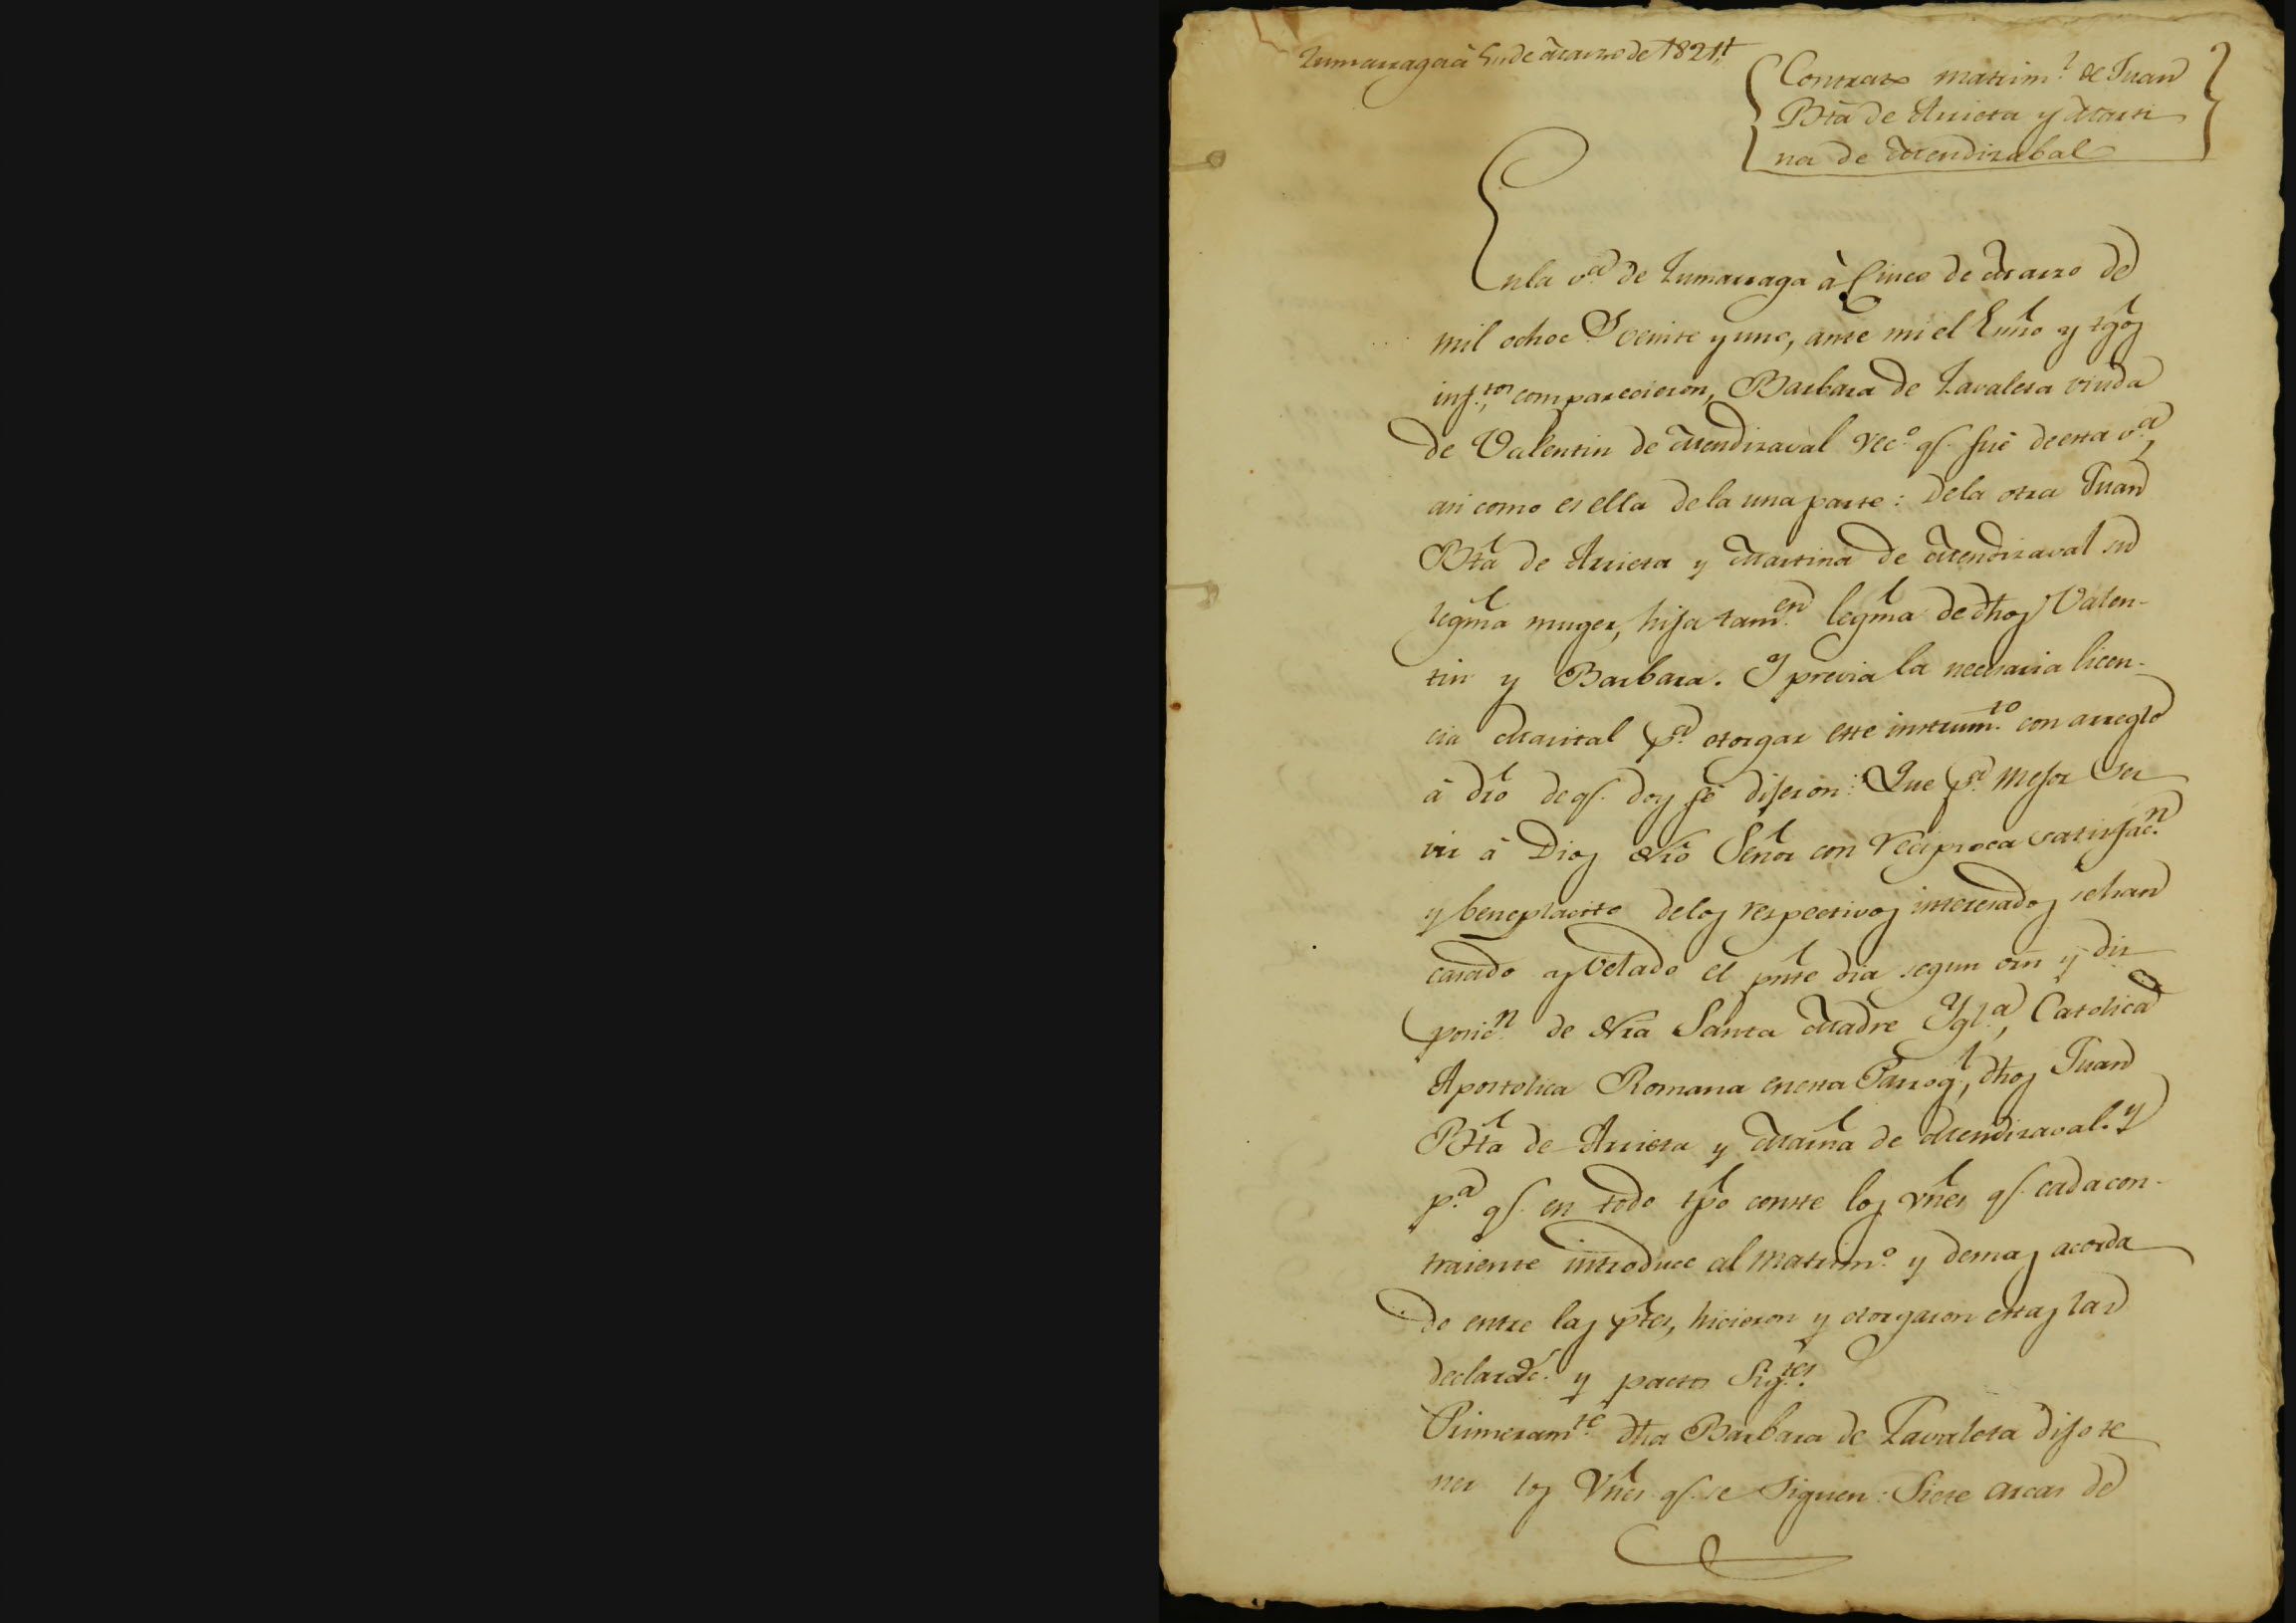 Zumarraga à 5 de Marzo de 1821
Contrato matrim.l de Juan
Bta de Arrieta y Marti
na de Mendizabal
En la v.a de Zumarraga à Cinco de Marzo de
mil ochoc.s veinte y uno, ante mi el Ess.no y tgos
inf.tos comparecieron, Barbara de Zavaleta viuda
de Valentin de Mendizaval vec.o q.e fué de esta v.a,
asi como es ella de la una parte: De la otra Juan
Bta de Arrieta y Martina de Mendizaval su
legma muger, hija tam.en legma de dhos Valen-
tin y Barbara. Y previa la necesaria licen-
cia Marital p.a otorgar este instrum.to con arreglo
à dro de q.e doy fé dijeron: Que p.a mejor ser
vir à Dios Nro Señor con reciproca satisfac.n
y beneplacito de los respectivos interesados se han
casado y velado el pnte dia segun orn y dis
posic.n de Nra Santa Madre Ygl.a, Catolica
Apostolica Romana en esta Parroq.l, dhos Juan
Bta de Arrieta y Marna de Mendizaval. Y
p.a q.e en todo tpo conste los vnes q.e cada con-
traiente introduce al matrim.o y demas acorda
do entre las ptes, hicieron y otorgaron estas las
declarac.s y pactos Sig.tes
Primeram.te dha Barbara de Zavaleta dijo te
ner los Vnes q.e se siguen: Siete arcas de